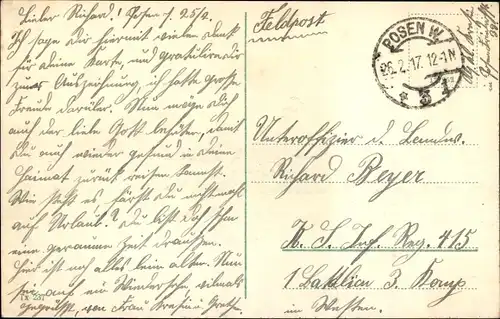 Lieber Richard! Posen d. 25/2.
Ich sage dir hiermit vielen Dank
für deine Karte, und gratuliere dir
zur Auszeichnung, ich hatte große
Freude darüber. Nun möge dich
auch der liebe Gott behüten, damit
du auch wieder gesund in deine
Heimat zurück reisen kannst.
Wie steht es fährst du nicht mal
auf Urlaub? Du bist doch schon
eine geraume Zeit draußen.
Hier ist noch alles beim alten. Nun
sei auf ein Wiedersehen vielmals
gegrüßt, von Frau
IX 231
Feldpost
POSEN W.
26.2.17. 12-1N
* 3 1
Unteroffizier d. Landw.
Richard Beyer
K. S. Inf. Reg. 415
1 Batllion 3. Komp
im Westen.